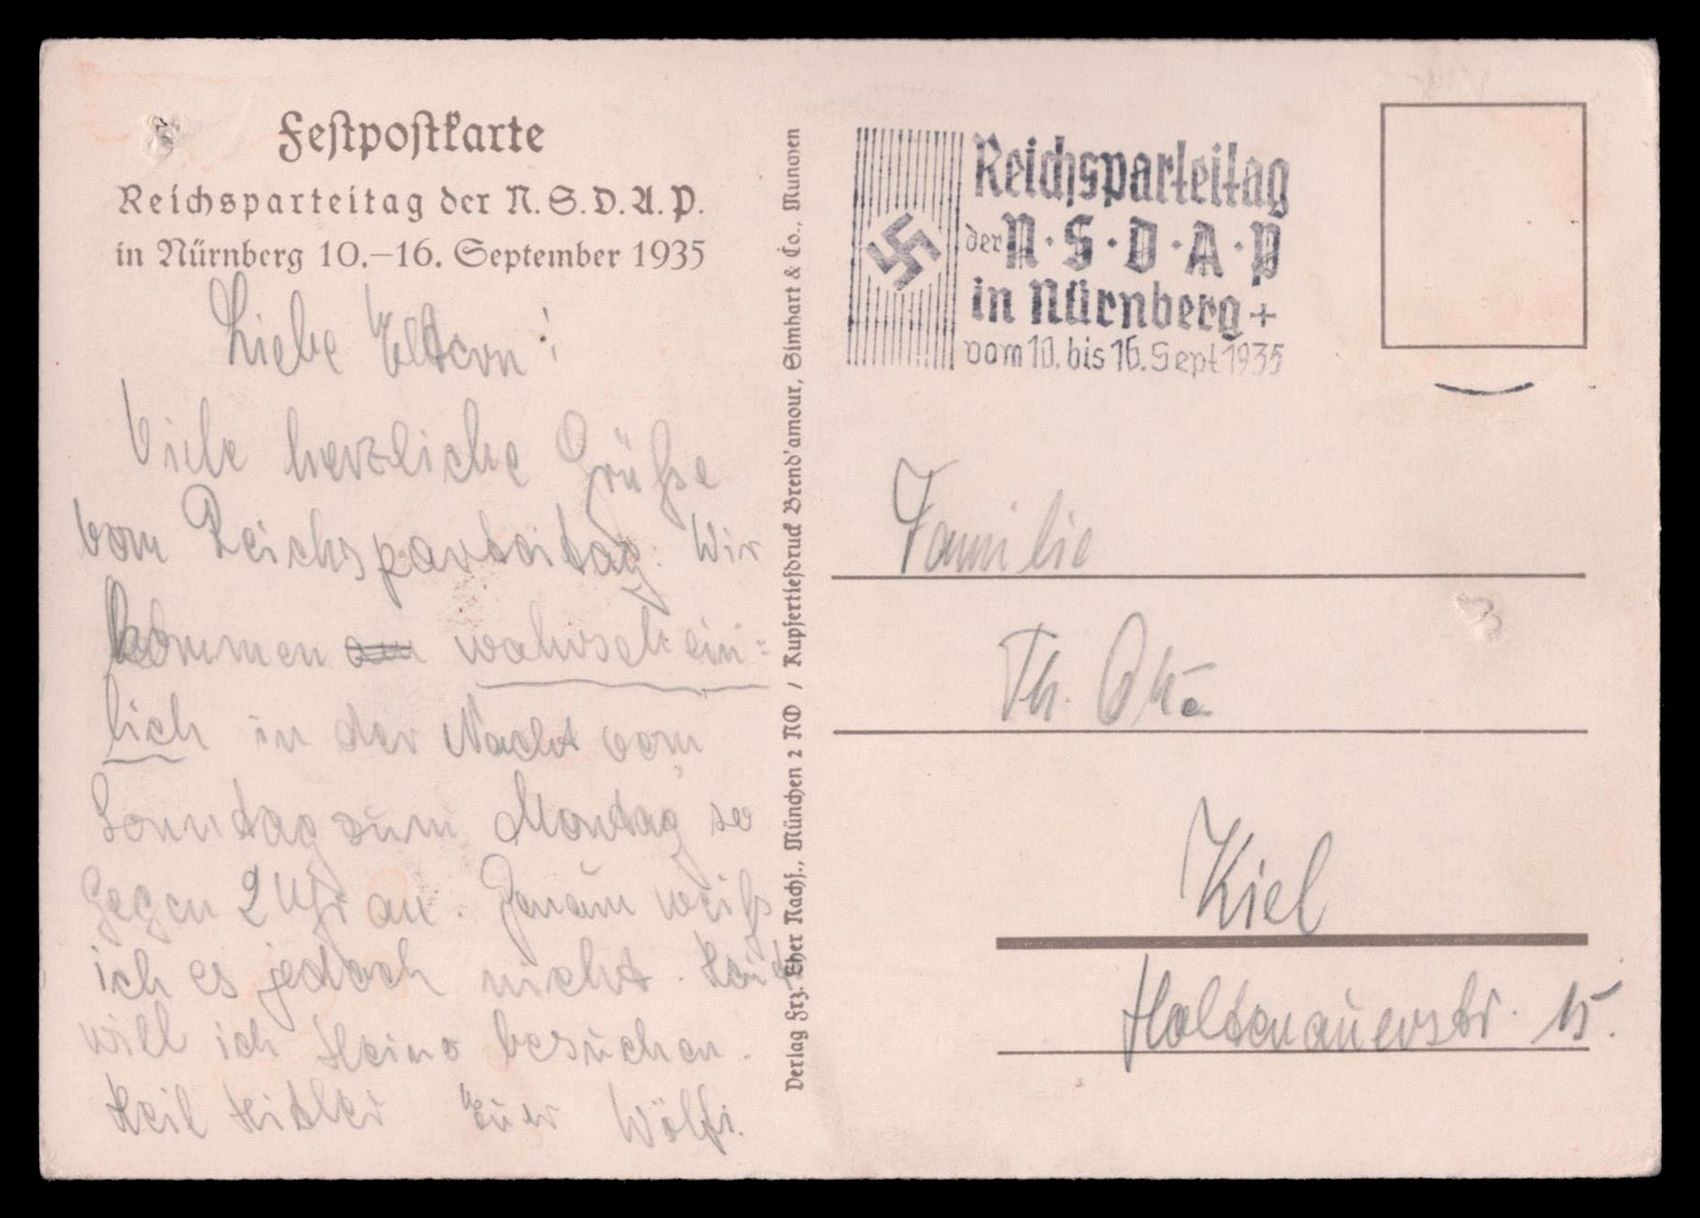 Festpostkarte
Reichsparteitag der N.S.D.A.P.
in Nürnberg 10.–16. September 1935
Liebe Eltern!
Viele herzliche Grüße
vom Reichsparteitag. Wir
kommen wahrschein=
lich in der Nacht vom
Sonntag zum Montag so
gegen 2 Uhr an. Genau weiß
ich es jedoch nicht. Heut
will ich Heino besuchen.
Heil Hitler Euer Wölfi.
Verlag Frz. Eher Nachf., München 2 NO / Kupfertiefdruck Brend'amour, Simhart & Co., München
Reichsparteitag
der N·S·D·A·P
in Nürnberg +
vom 10. bis 16. Sept 1935
Familie
Th.
Kiel
Holtenauerstr. 15.